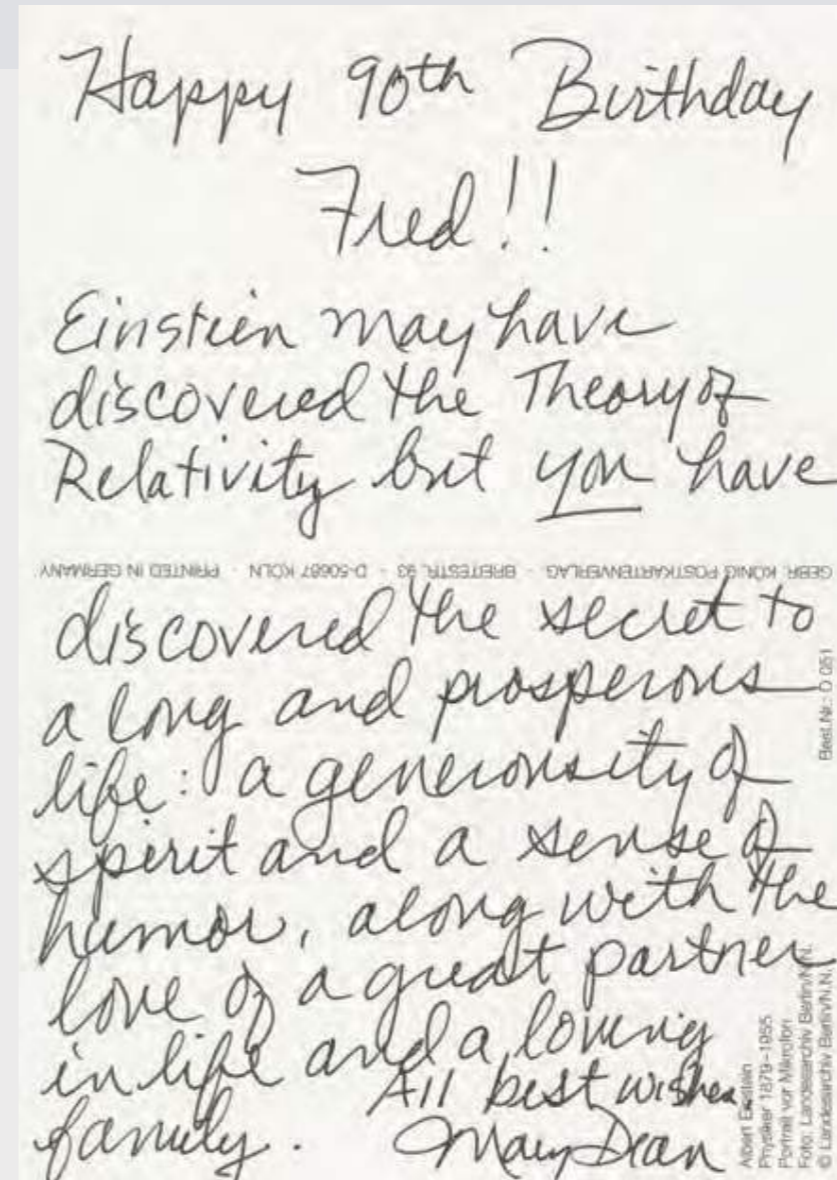 Happy 90th Birthday
Fred!!
Einstein may have
discovered the Theory of
Relativity but you have
GEBR. KÖNIG POSTKARTENVERLAG · BREITESTR. 93 · D-50667 KÖLN · PRINTED IN GERMANY
discovered the secret to
a long and prosperous
life: a generousity of
spirit and a sense of
humor, along with the
love of a great partner
in life and a loving
family.
All best wishes,
Mary Dean
Best.Nr.: O 051
Albert Einstein
Physiker 1879–1955
Portrait vor Mikrofon
Foto: Landesarchiv Berlin/N.N.
© Landesarchiv Berlin/N.N.